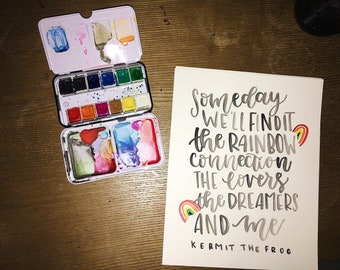 someday
WE'LL FIND IT
the RAINBOW
connection
THE lovers
the DREAMERS
AND me
KERMIT THE FROG